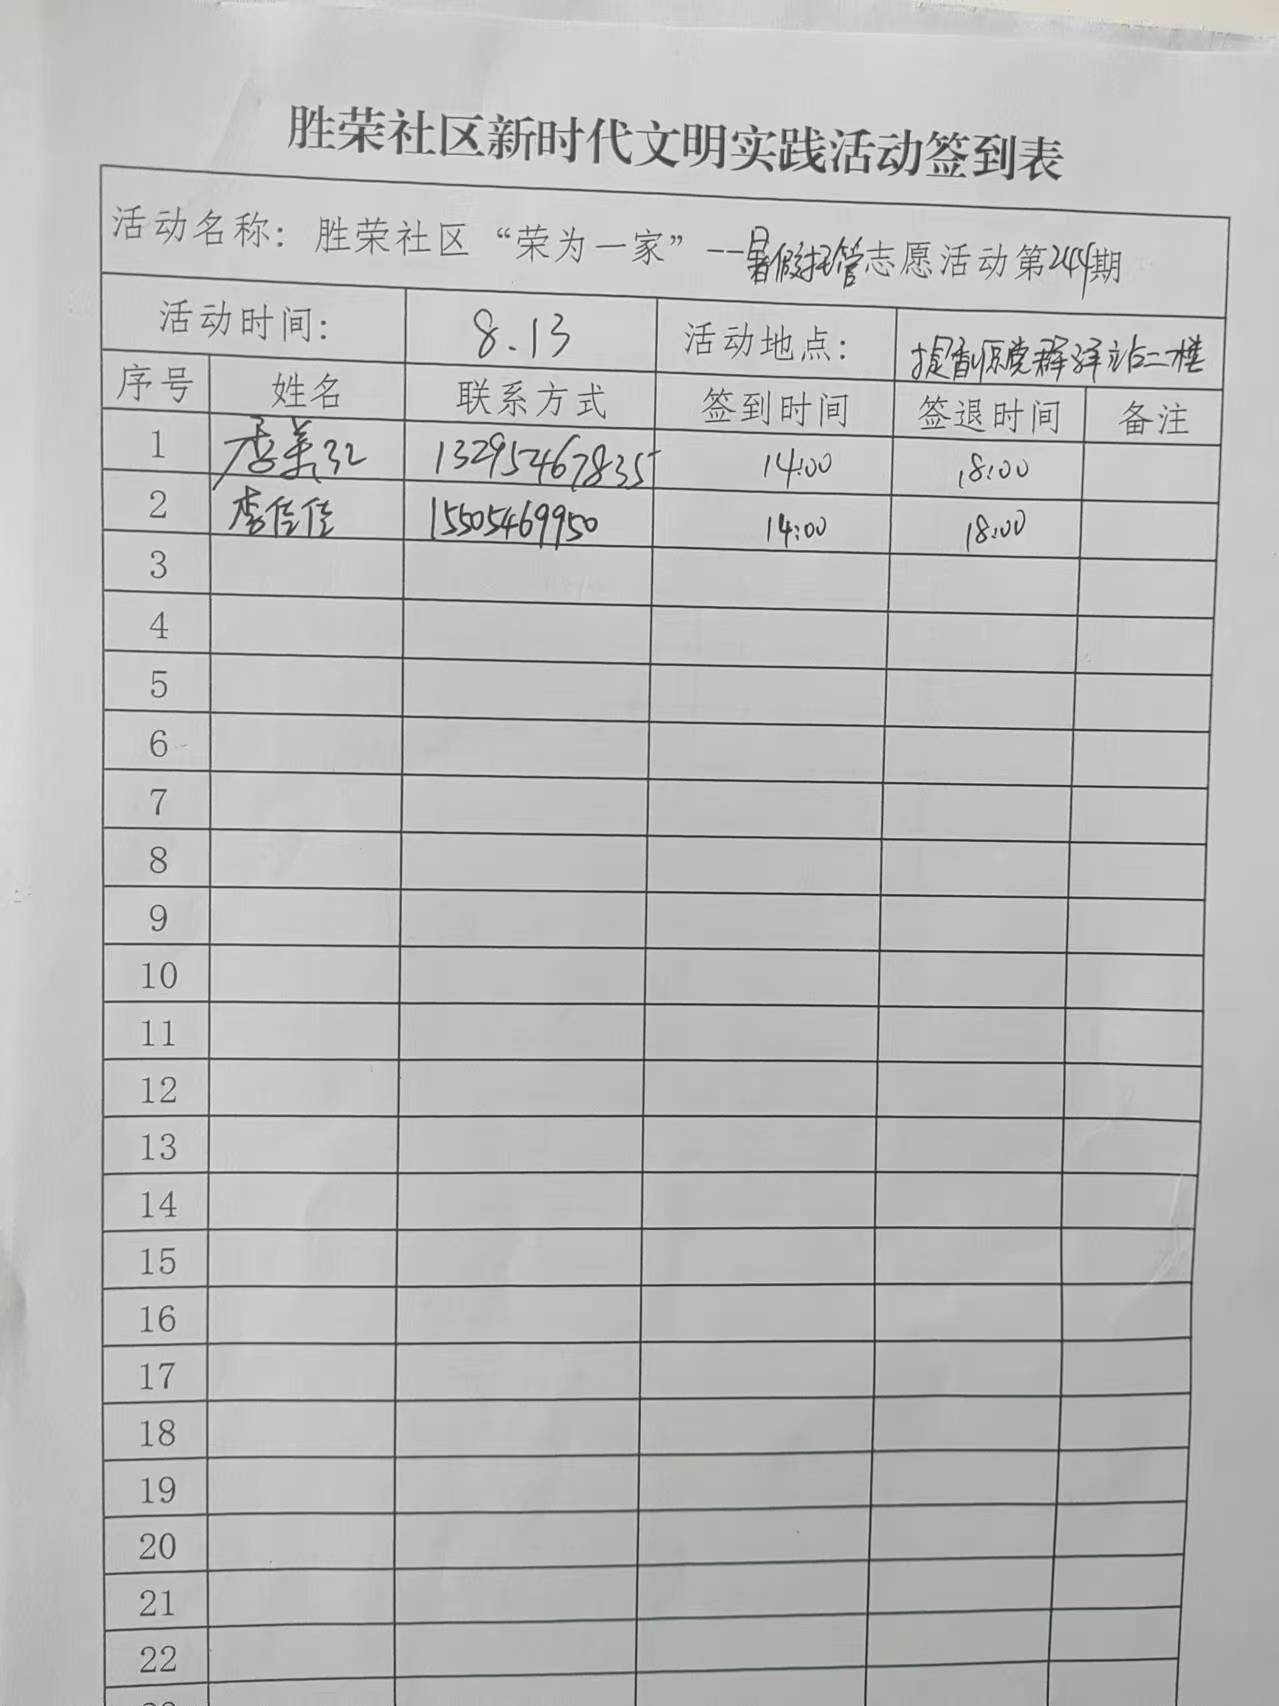 胜荣社区新时代文明实践活动签到表
活动名称：胜荣社区“荣为一家”--暑假托管志愿活动第244期
活动时间： 8.13 活动地点： 提香源党群驿站二楼
序号 姓名 联系方式 签到时间 签退时间 备注
1 李美红 13295467835 14:00 18:00
2 李佳佳 15505469950 14:00 18:00
3
4
5
6
7
8
9
10
11
12
13
14
15
16
17
18
19
20
21
22